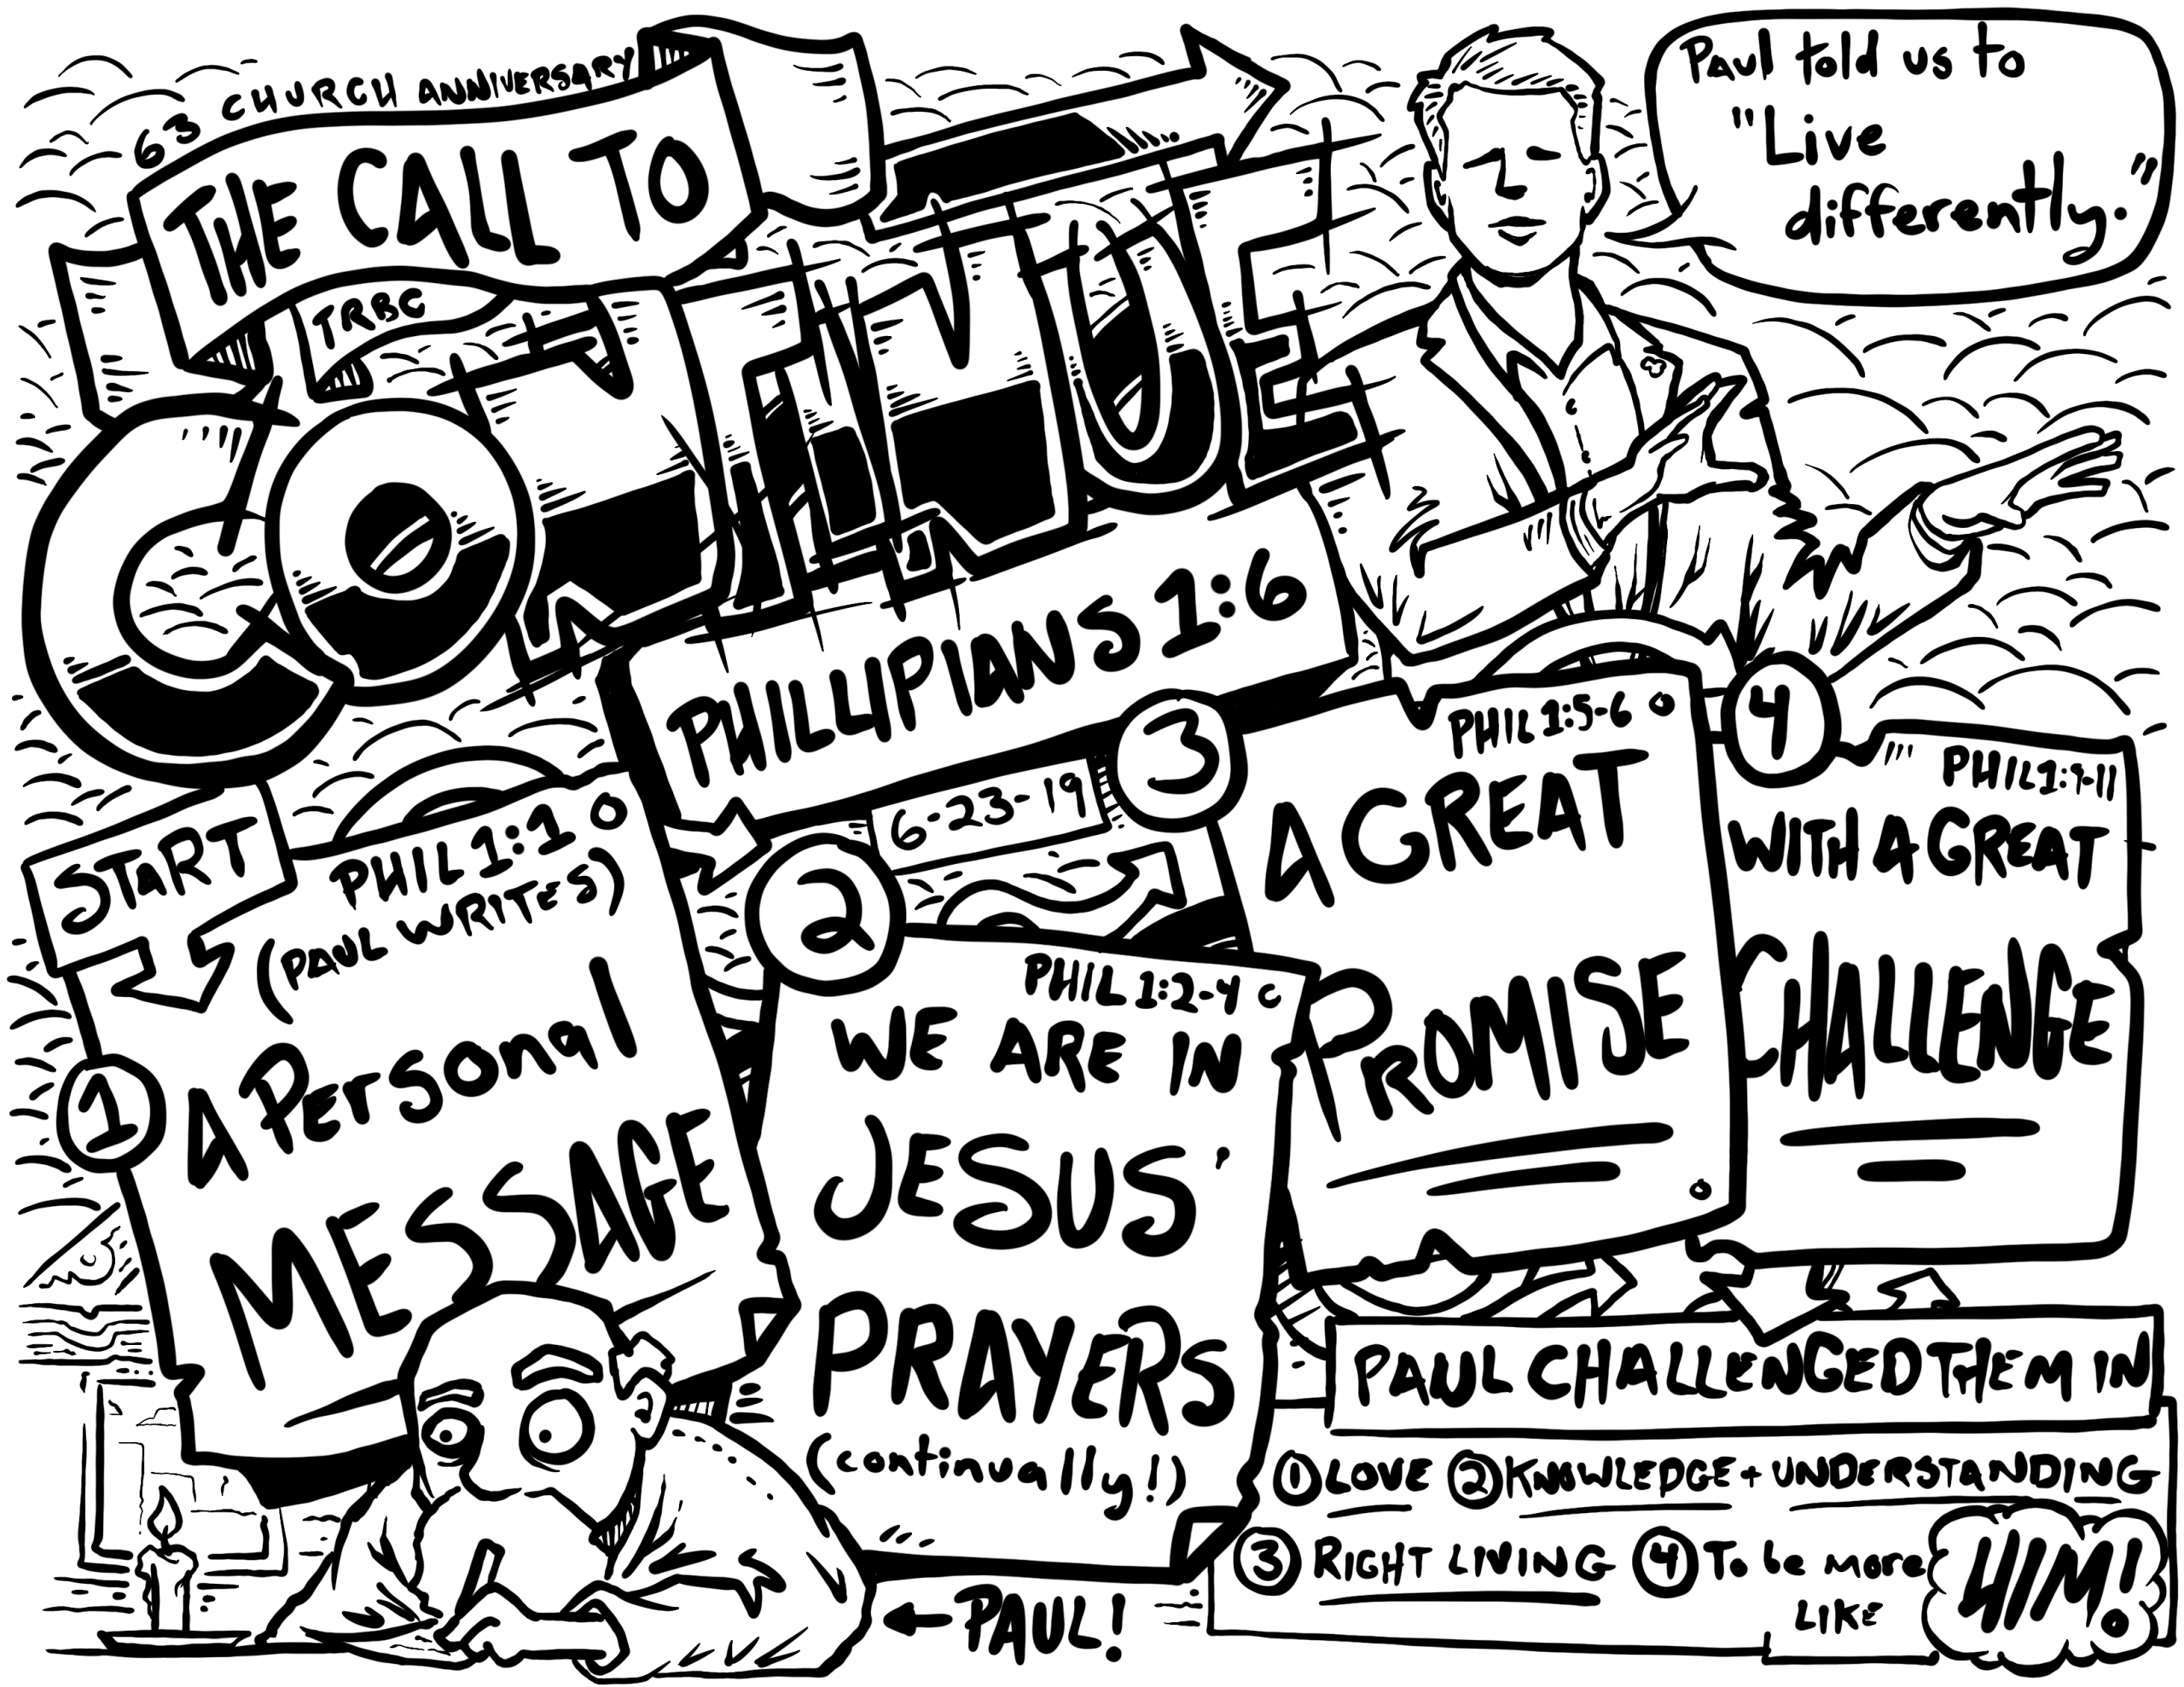 63 CHURCH ANNIVERSARY
THE CALL TO
TRBC
CONTINUE
Paul told us to
"Live
differently."
PHILLIPIANS 1:6
6-23-19
START
PHIL 1:1
(PAUL WRITES)
1
A Personal
MESSAGE
2
PHIL 1:2-4 C
WE ARE IN
JESUS'
PRAYERS
(continually!)
3
PHIL 1:5-6
A GREAT
PROMISE
4
PHIL 1:9-11
WITH A GREAT
CHALLENGE
PAUL CHALLENGED THEM IN
① LOVE ② KNOWLEDGE + UNDERSTANDING
③ RIGHT LIVING ④ To be more
LIKE
HIM!
← PAUL!